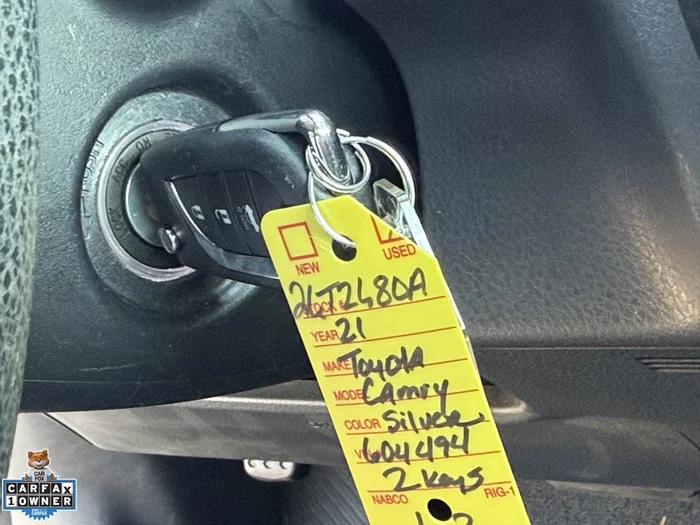 IGNITION
LOCK ACC ON
NEW
USED
STOCK #
YEAR 21
MAKE Toyota
MODEL Camry
COLOR Silver
VIN# 604494
2 keys
NABCO RIG-1
CAR FOX
CARFAX
1 OWNER